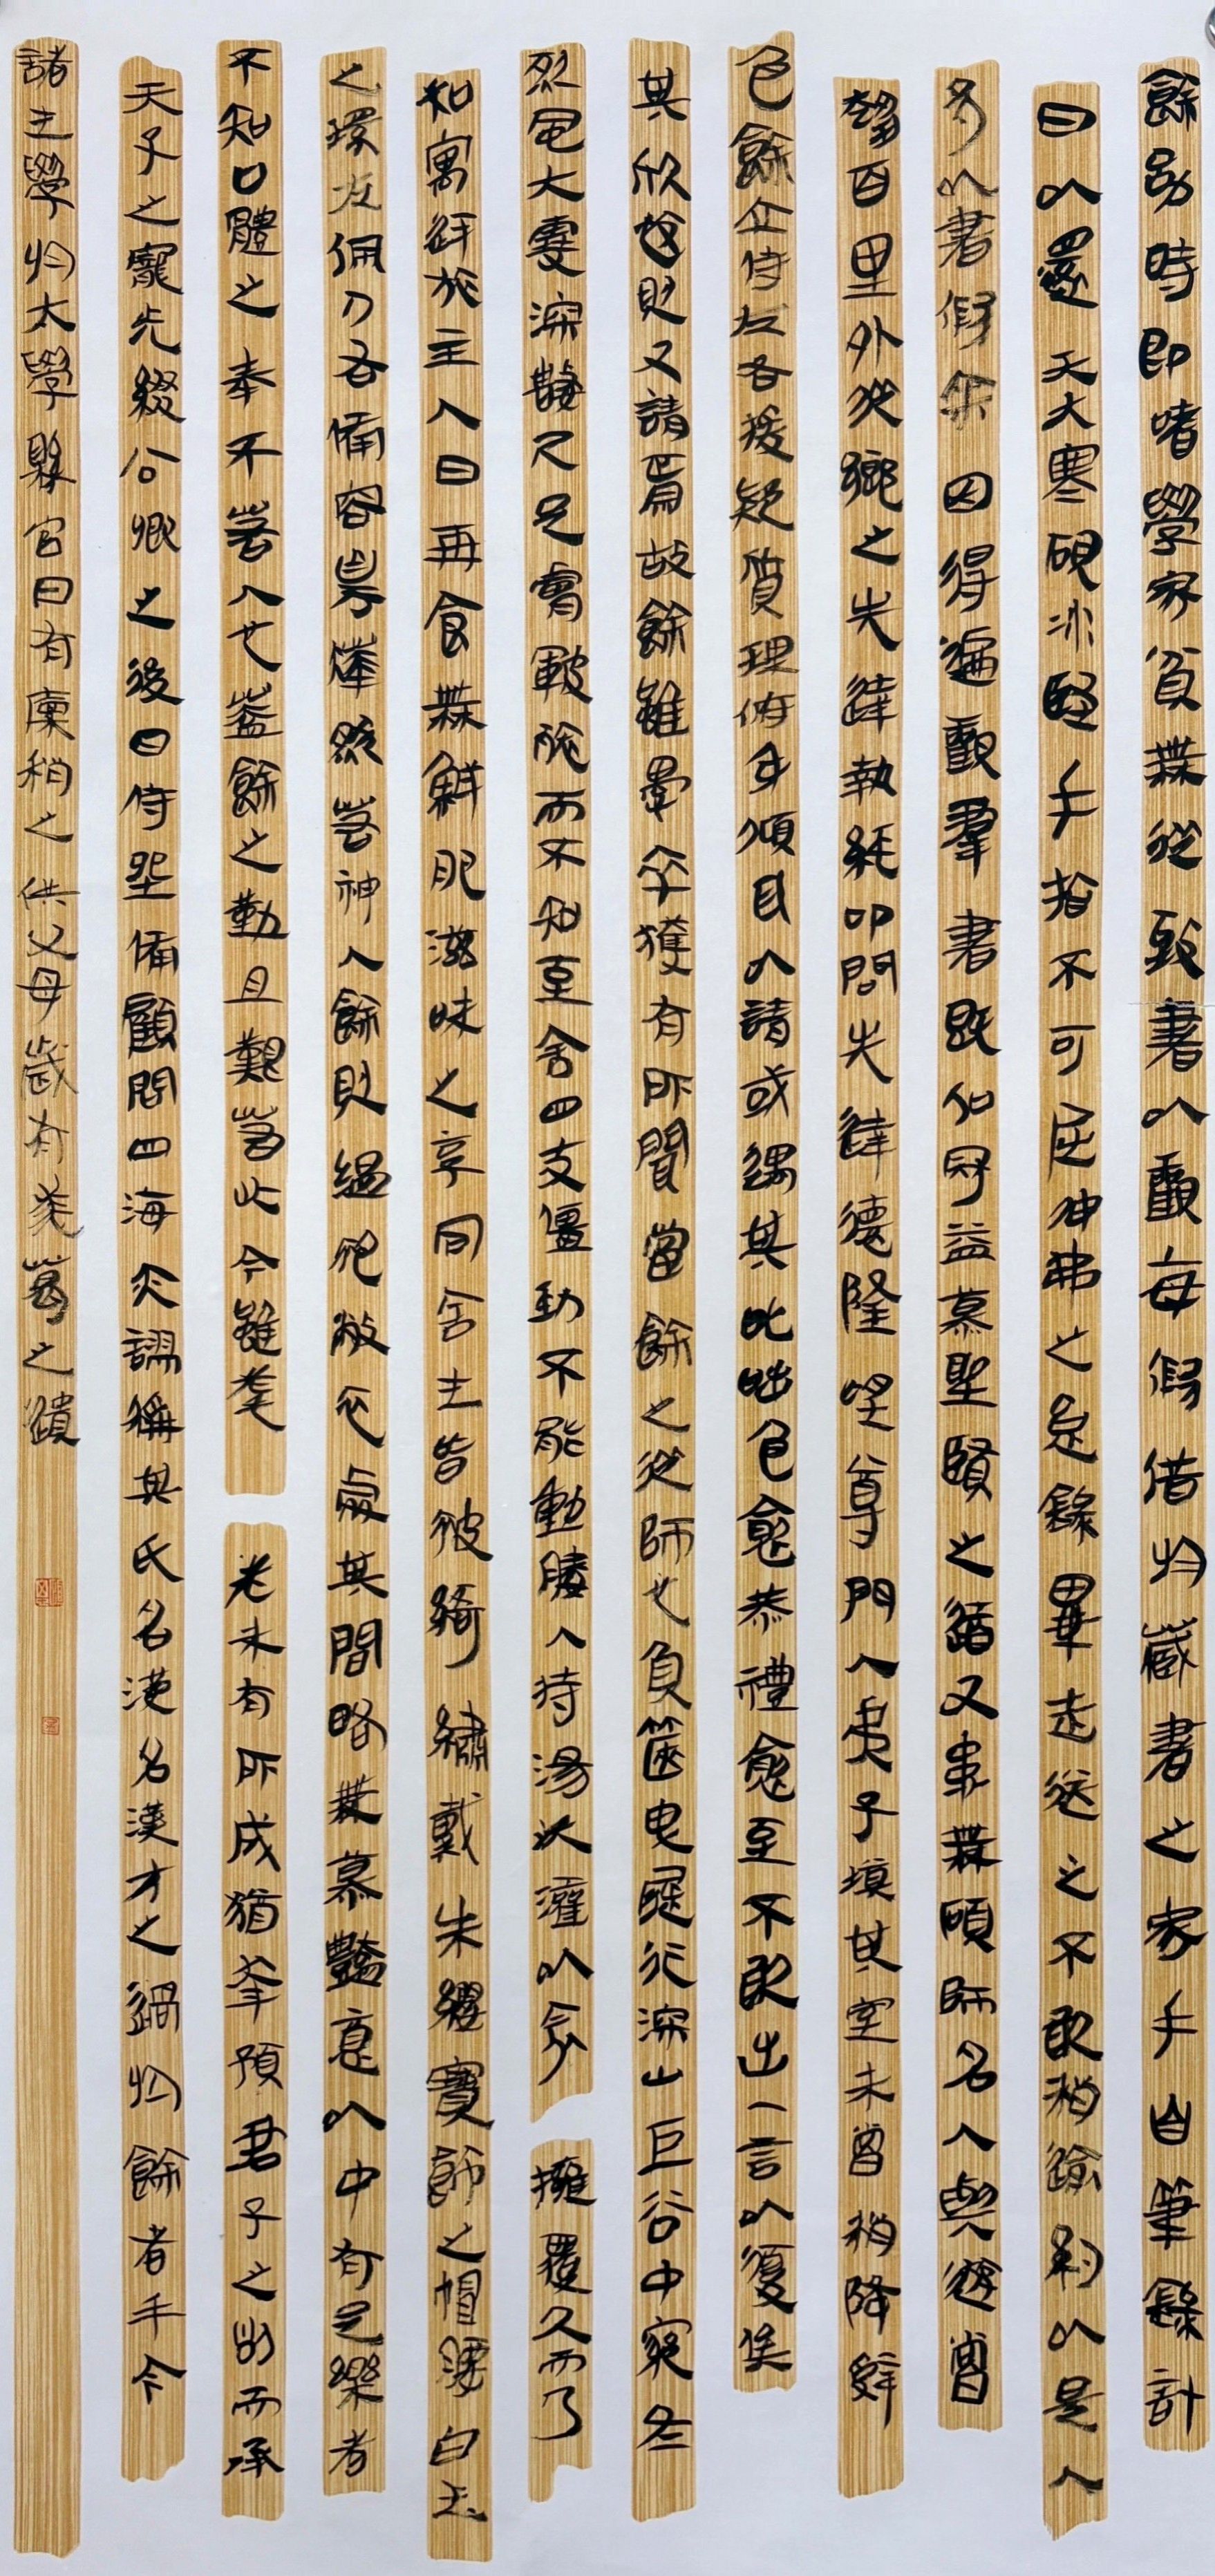 餘幼時即嗜學家貧無從致書以觀每假借扵藏書之家手自筆錄計
日以還天大寒硯冰堅手指不可屈伸弗之怠錄畢走送之不敢稍逾約以是人
多以書假余因得遍觀羣書既加冠益慕聖賢之道又患無碩師名人與遊嘗
趨百里外從鄉之先達執經叩問先達德隆望尊門人弟子填其室未嘗稍降辭
色餘立侍左右援疑質理俯身傾耳以請或遇其叱咄色愈恭禮愈至不敢出一言以復俟
其欣悅則又請焉故餘雖愚卒獲有所聞當餘之從師也負篋曳屣行深山巨谷中窮冬
烈風大雪深數尺足膚皸裂而不知至舍四支僵勁不能動媵人持湯沃灌以衾擁覆久而乃
和寓逆旅主人日再食無鮮肥滋味之享同舍生皆被綺繡戴朱纓寶飾之帽腰白玉
之環左佩刀右備容臭燁然若神人餘則縕袍敝衣處其間略無慕豔意以中有足樂者
不知口體之奉不若人也蓋餘之勤且艱若此今雖耄老未有所成猶幸預君子之列而承
天子之寵光綴公卿之後日侍坐備顧問四海亦謬稱其氏名況名漢才之過扵餘者乎今
諸生學扵太學縣官日有廩稍之供父母歲有裘葛之遺